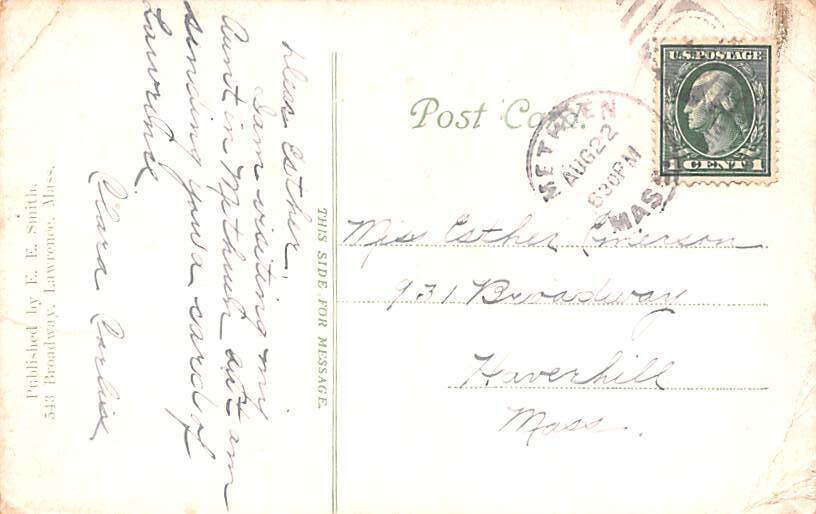 Dear Esther:
I am visiting my
Aunt in Methuen and am
sending you a card of
Lawrence.
Clara Corliss
Published by E. E. Smith,
543 Broadway, Lawrence, Mass.
THIS SIDE FOR MESSAGE.
Post Card.
METHUEN
AUG 22
630 PM
MASS
U.S. POSTAGE
1 CENT 1
Miss Esther Emerson
931 Broadway
Haverhill
Mass.